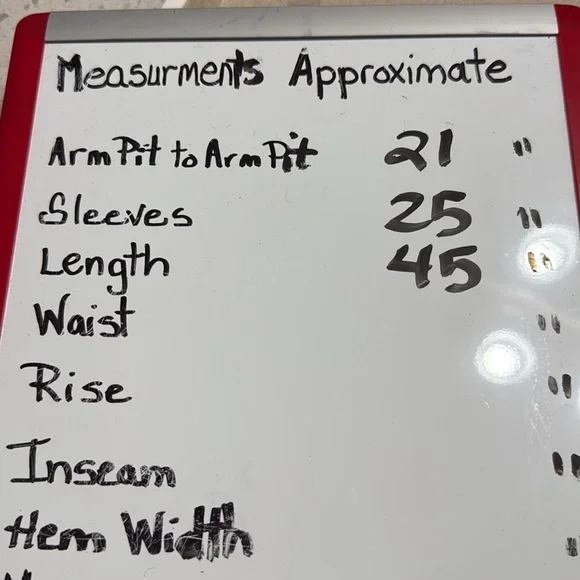 Measurments Approximate
Arm Pit to Arm Pit 21 "
Sleeves 25 "
Length 45 "
Waist "
Rise "
Inseam "
Hem Width "